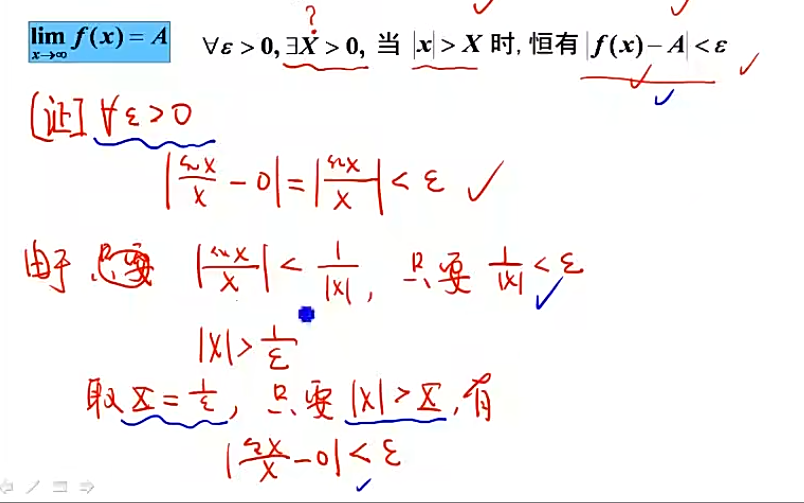 ?
lim f(x) = A
x→∞
∀ε > 0, ∃X > 0, 当 |x| > X 时, 恒有 |f(x) − A| < ε
[证] ∀ε > 0
|sinx/x − 0| = |sinx/x| < ε
由于 只要 |sinx/x| < 1/|x|, 只要 1/|x| < ε
|x| > 1/ε
取 X = 1/ε, 只要 |x| > X, 有
|sinx/x − 0| < ε